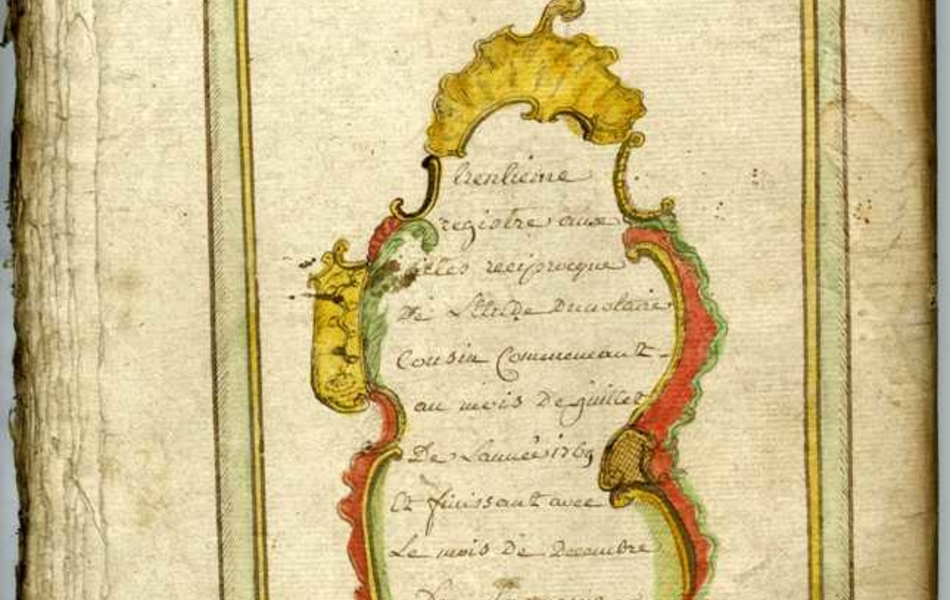 trentieme
registre aux
actes reciprocque
De L'Etude Du notaire
Cousin Commencant
au mois De juillet
De L'année 1769
Et finissant avec
Le mois De Decembre
De